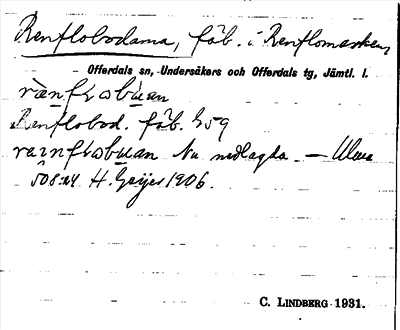 Renflobodarna, fäb. i Renflomarken,
Offerdals sn, Undersåkers och Offerdals tg, Jämtl. l.
Renflobod. fäb. G59
Nu nedlagda. —
508:24 H. Geijer 1906.
C. LINDBERG 1931.